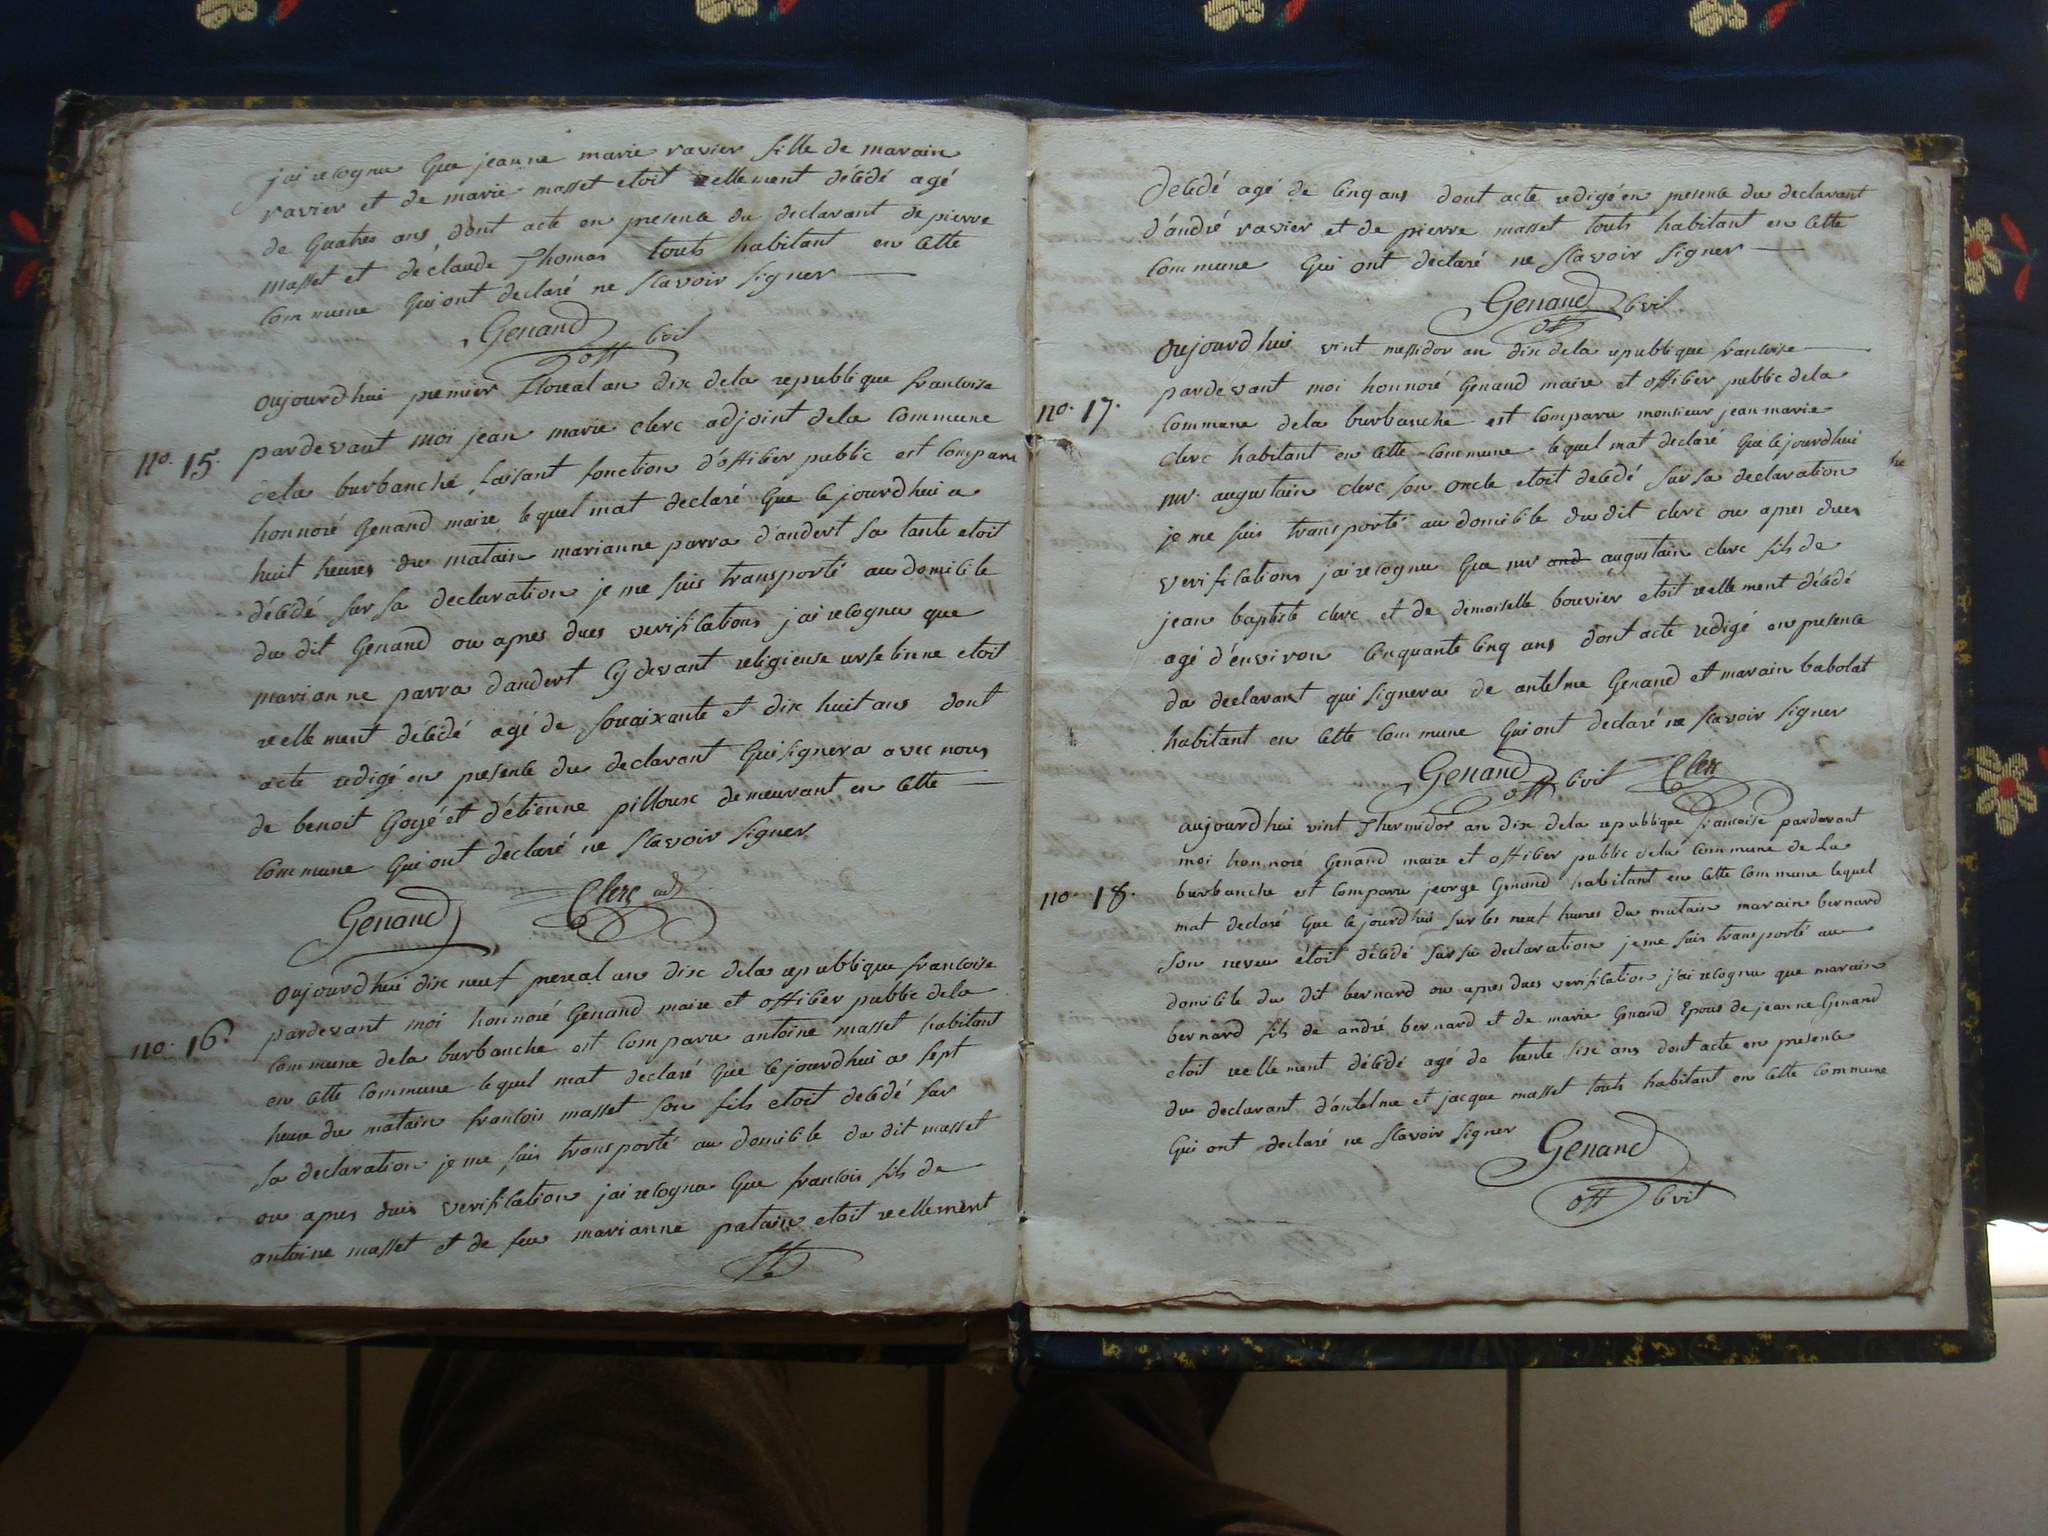 j'ai recognu que jeanne marie ravier fille de marain
ravier et de marie masset etoit reellement décédé agé
de quatres ans, dont acte en presence du declarant de pierre
masset et de claude Thomas touts habitant en cette
commune qui ont declaré ne scavoir signer
Genand off civil
oujourdhui premier floreal an dix de la republique francoise
no. 15. pardevant moi jean marie clerc adjoint dela commune
dela burbanche, faisant fonction d'officier public est comparu
honnoré Genand maire lequel mat declaré que cejourdhui a
huit heures du matain marianne parra d'andert sa tante etoit
décédé sur sa declaration je me suis transporté au domicile
du dit Genand ou apres dues verifications j'ai recognu que
marianne parra dandert cy devant religieuse urselinne etoit
reellement décédé agé de souaixante et dix huit ans dont
acte redigé en presence du declarant qui signera avec nous
de benoit Goyé et d'étienne pilloux demeurant en cette
commune qui ont declaré ne scavoir signer
Genand Clerc adj
oujourdhui dix neuf prereal an dix dela republique francoise
no. 16. pardevant moi honnoré Genand maire et officier public dela
commune dela burbanche est comparu antoine masset habitant
en cette commune lequel mat declaré que cejourdhui a sept
heure du matain francois masset son fils etoit decedé sur
sa declaration je me suis transporté au domicile du dit masset
ou apres dues verification j'ai recognu que francois fils de
antoine masset et de feu marianne patain etoit reellement
décédé agé de cinq ans dont acte redigé en presence du declarant
d'andré ravier et de pierre masset touts habitant en cette
commune qui ont declaré ne scavoir signer
Genand off civil
oujourdhui vint messidor an dix dela republique francoise
pardevant moi honnoré Genand maire et officier public dela
no. 17. commune dela burbanche est comparu monsieur jean marie
clerc habitant en cette commune lequel mat declaré que cejourdhui
mr. augustain clerc son oncle etoit decedé sur sa declaration
je me suis transporté au domicile du dit clerc ou apres dues
verifications j'ai recognu que mr and augustain clerc fils de
jean baptiste clerc et de dimoiselle bouvier etoit reellement décédé
agé d'environ cinquante cinq ans dont acte redigé en presence
du declarant qui signera de antelme Genand et marain babolat
habitant en cette commune qui ont declaré ne scavoir signer
Genand off civil Clerc
aujourdhui vint Thermidor an dix dela republique francoise pardevant
moi honnoré Genand maire et officier public dela commune de La
no. 18. burbanche est comparu jeorge Genand habitant en cette commune lequel
mat declaré que cejourdhui sur les neuf heures du matain marain bernard
son neveu étoit décédé sur sa declaration je me suis transporté au
domicile du dit bernard ou apres dues verification j'ai recognu que marain
bernard fils de andré bernard et de marie Genand Epous de jeanne Genand
etoit reellement décédé agé de trente sixe ans dont acte en presence
du declarant d'antelme et jacque masset touts habitant en cette commune
qui ont declaré ne scavoir signer Genand
off civil